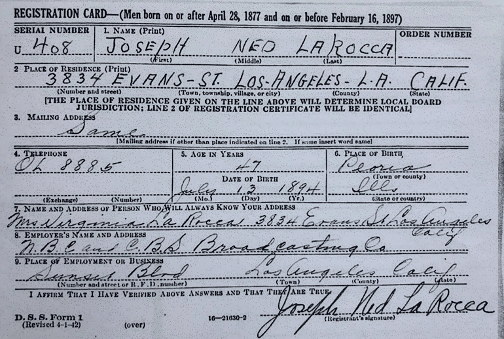 REGISTRATION CARD—(Men born on or after April 28, 1877 and on or before February 16, 1897)
SERIAL NUMBER 1. NAME (Print) ORDER NUMBER
U 408 JOSEPH NED LAROCCA
(First) (Middle) (Last)
2 PLACE OF RESIDENCE (Print)
3834 EVANS-ST. LOS-ANGELES-L.A. CALIF.
(Number and street) (Town, township, village, or city) (County) (State)
[THE PLACE OF RESIDENCE GIVEN ON THE LINE ABOVE WILL DETERMINE LOCAL BOARD
JURISDICTION; LINE 2 OF REGISTRATION CERTIFICATE WILL BE IDENTICAL]
3. MAILING ADDRESS
Same
[Mailing address if other than place indicated on line 2. If same insert word same]
4. TELEPHONE 5. AGE IN YEARS 6. PLACE OF BIRTH
OL 8885 47 Peoria
DATE OF BIRTH (Town or county)
July 13 1894 Ills
(Exchange) (Number) (Mo.) (Day) (Yr.) (State or country)
7. NAME AND ADDRESS OF PERSON WHO WILL ALWAYS KNOW YOUR ADDRESS
Mrs Virginia La Rocca 3834 Evans St Los Angeles
Calif
8. EMPLOYER'S NAME AND ADDRESS
N.B.C and C.B.S Broadcasting Co
9. PLACE OF EMPLOYMENT OR BUSINESS
Sunset Blvd Los Angeles Calif
(Number and street or R. F. D. number) (Town) (County) (State)
I AFFIRM THAT I HAVE VERIFIED ABOVE ANSWERS AND THAT THEY ARE TRUE.
Joseph Ned La Rocca
D. S. S. Form 1
(Revised 4-1-42) (over) 16—21630-2 (Registrant's signature)